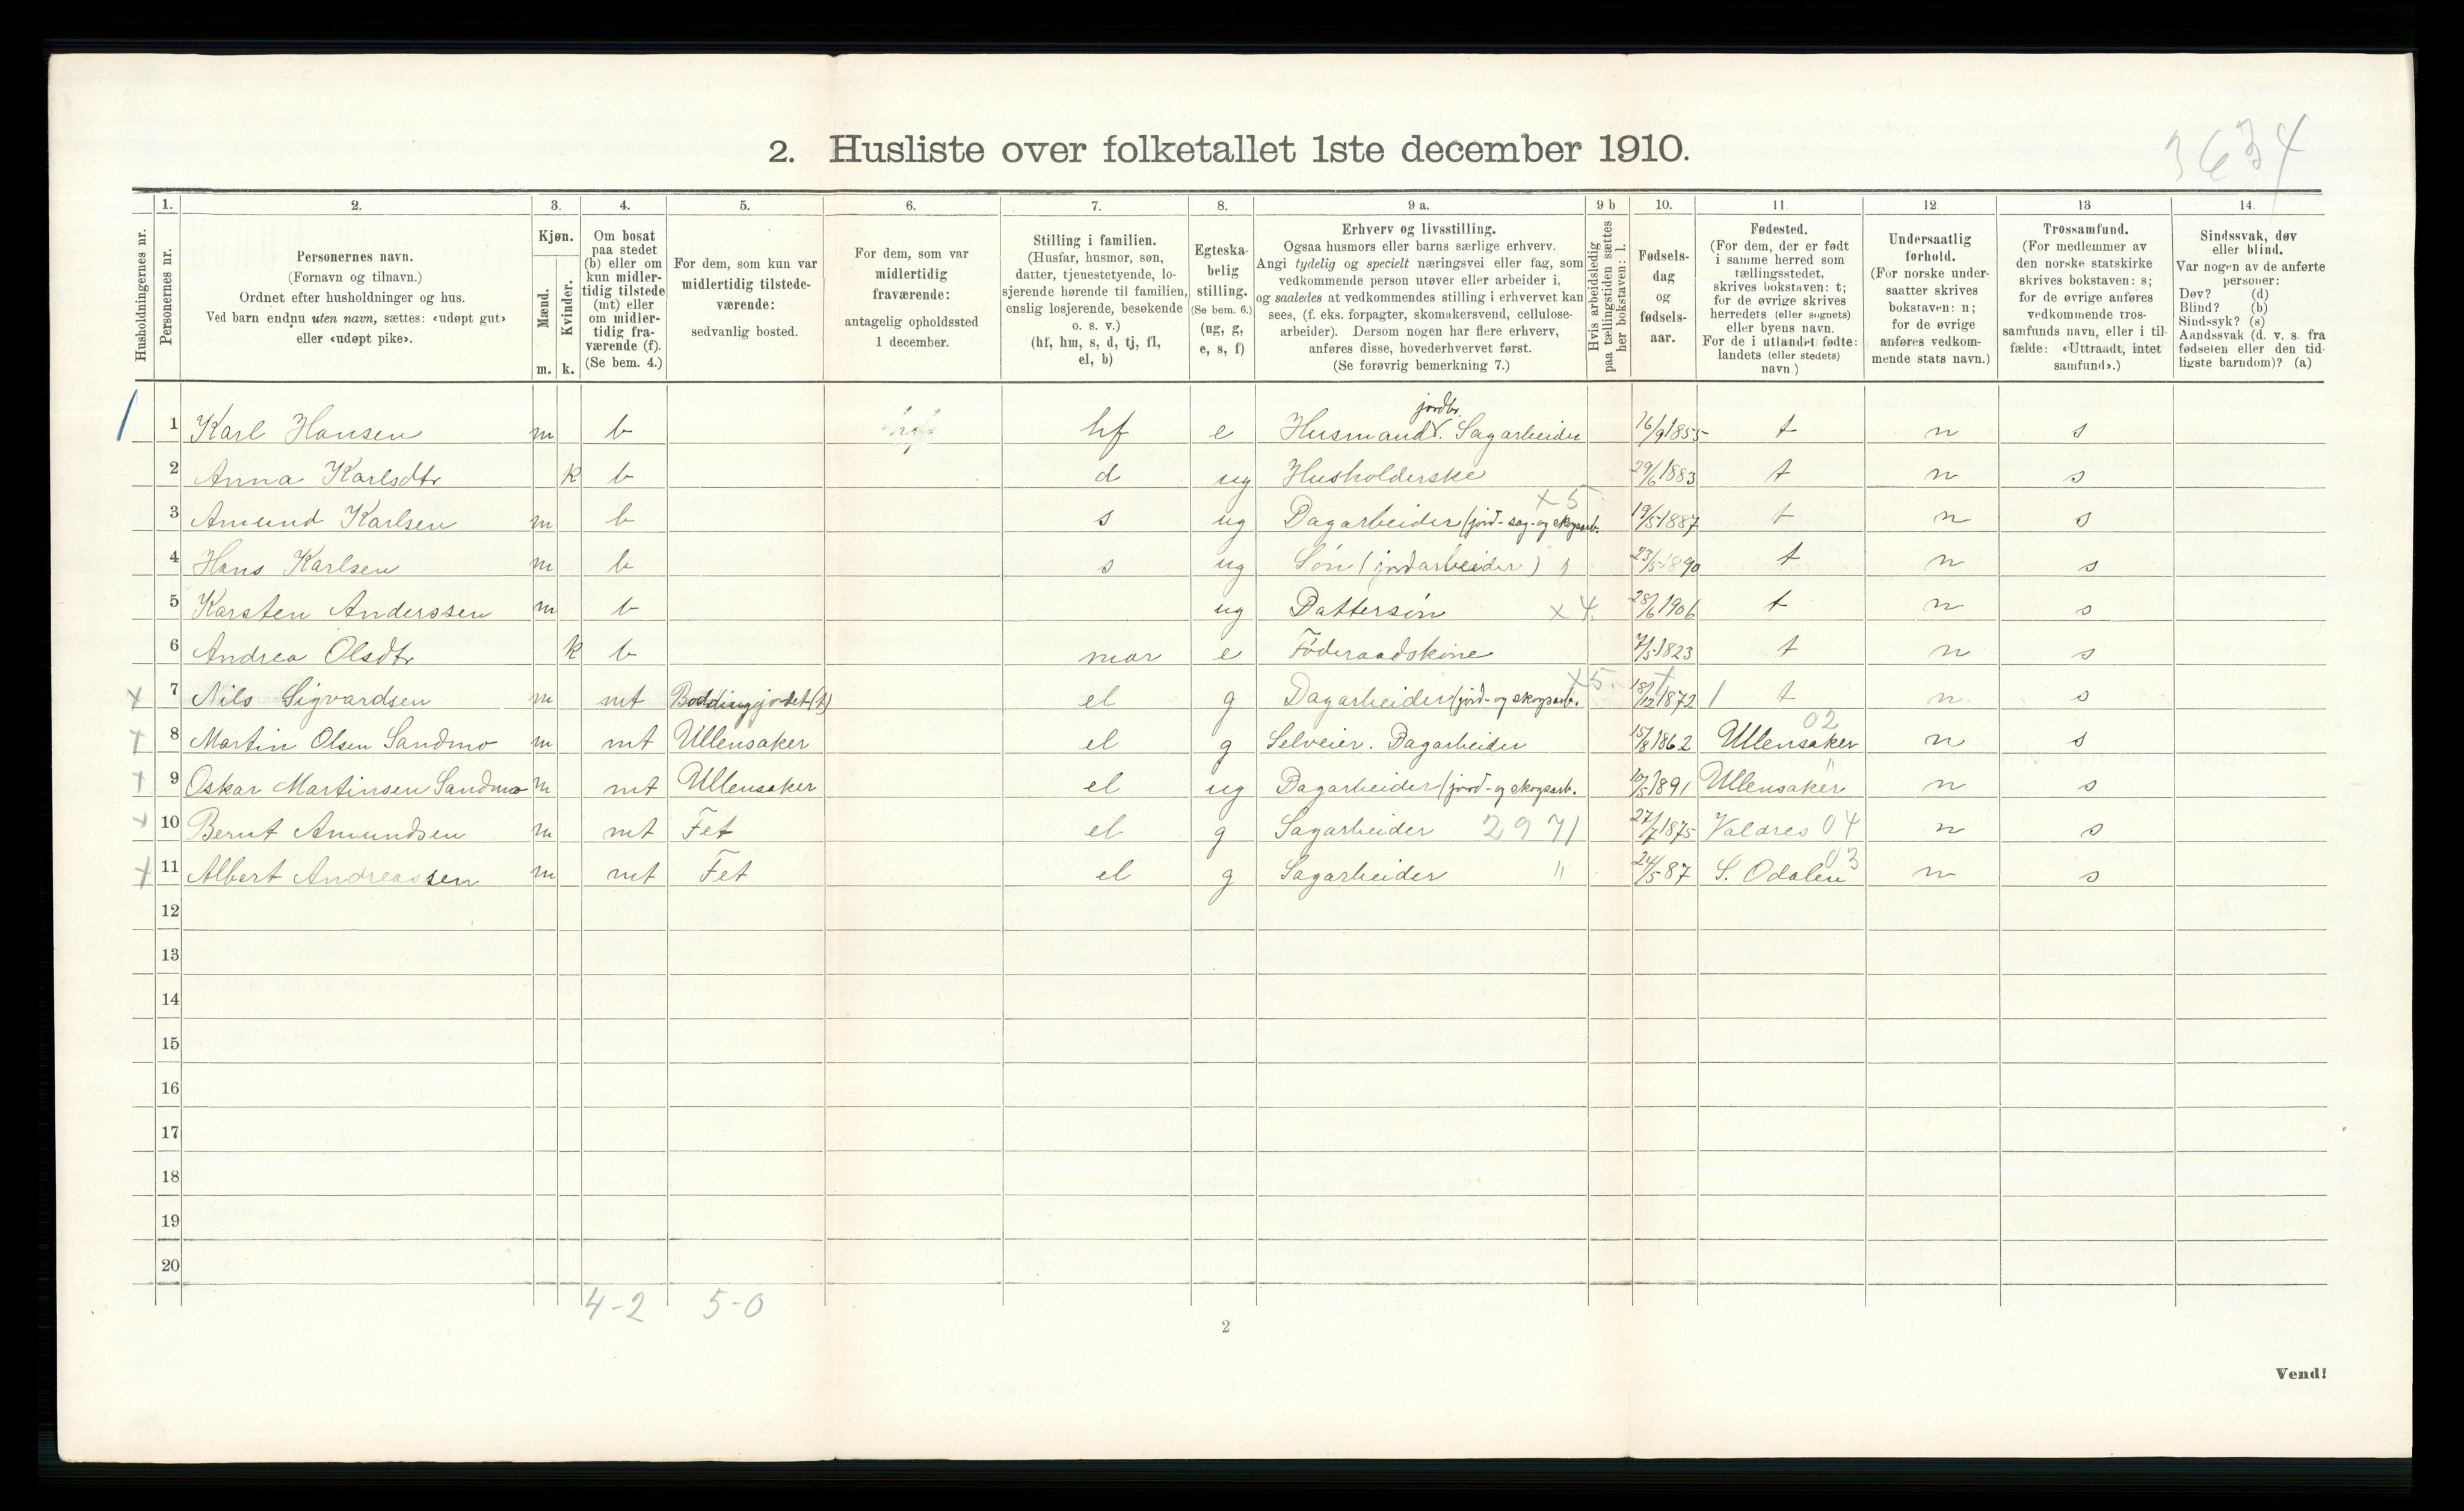 3634
2. Husliste over folketallet 1ste december 1910.
Husholdningernes nr.
1.
Personernes nr.
2.
Personernes navn.
(Fornavn og tilnavn.)
Ordnet efter husholdninger og hus.
Ved barn endnu uten navn, sættes: «udøpt gut»
eller «udøpt pike».
3.
Kjøn.
Mænd.
Kvinder.
m. k.
4.
Om bosat
paa stedet
(b) eller om
kun midler-
tidig tilstede
(mt) eller
om midler-
tidig fra-
værende (f).
(Se bem. 4.)
5.
For dem, som kun var
midlertidig tilstede-
værende:
sedvanlig bosted.
6.
For dem, som var
midlertidig
fraværende:
antagelig opholdssted
1 december.
7.
Stilling i familien.
(Husfar, husmor, søn,
datter, tjenestetyende, lo-
sjerende hørende til familien,
enslig losjerende, besøkende
o. s. v.)
(hf, hm, s, d, tj, fl,
el, b)
8.
Egteska-
belig
stilling.
(Se bem. 6.)
(ug, g,
e, s, f)
9 a.
Erhverv og livsstilling.
Ogsaa husmors eller barns særlige erhverv.
Angi tydelig og specielt næringsvei eller fag, som
vedkommende person utøver eller arbeider i,
og saaledes at vedkommendes stilling i erhvervet kan
sees, (f. eks. forpagter, skomakersvend, cellulose-
arbeider). Dersom nogen har flere erhverv,
anføres disse, hovederhvervet først.
(Se forøvrig bemerkning 7.)
9 b
Hvis arbeidsledig
paa tællingstiden sættes
her bokstaven: l.
10.
Fødsels-
dag
og
fødsels-
aar.
11.
Fødested.
(For dem, der er født
i samme herred som
tællingsstedet,
skrives bokstaven: t;
for de øvrige skrives
herredets (eller sognets)
eller byens navn.
For de i utlandet fødte:
landets (eller stedets)
navn.)
12.
Undersaatlig
forhold.
(For norske under-
saatter skrives
bokstaven: n;
for de øvrige
anføres vedkom-
mende stats navn.)
13
Trossamfund.
(For medlemmer av
den norske statskirke
skrives bokstaven: s;
for de øvrige anføres
vedkommende tros-
samfunds navn, eller i til-
fælde: «Uttraadt, intet
samfund».)
14.
Sindssvak, døv
eller blind.
Var nogen av de anførte
personer:
Døv? (d)
Blind? (b)
Sindssyk? (s)
Aandssvak (d. v. s. fra
fødselen eller den tid-
ligste barndom)? (a)
jordbr.
1 Karl Hansen m b hf e Husmand v. Sagarbeider 16/9 1855 t n s
2 Anna Karlsdtr k b d ug Husholderske 29/6 1883 t n s
×5
3 Amund Karlsen m b s ug Dagarbeider (jord-sag-og skogsarb. 19/5 1887 t n s
4 Hans Karlsen m b s ug Søn (jordarbeider) 23/5 1890 t n s
5 Karsten Anderssen m b ug Dattersøn ×4. 28/6 1906 t n s
6 Andrea Olsdtr k b mor e Føderaadskone 7/5 1823 t n s
×5.
× 7 Nils Sigvardsen m mt Boddingjordet (t) el g Dagarbeider (jord- og skogsarb. 18/12 1872 t n s
02
× 8 Martin Olsen Sandmo m mt Ullensaker el g Selveier. Dagarbeider 15/8 1862 Ullensaker n s
× 9 Oskar Martinsen Sandmo m mt Ullensaker el ug Dagarbeider (jord- og skogsarb. 10/5 1891 Ullensaker " n s
× 10 Bernt Amundsen m mt Fet el g Sagarbeider 2971 27/7 1875 Valdres 04 n s
× 11 Albert Andreassen m mt Fet el g Sagarbeider " 24/5 87 S. Odalen 03 n s
12
13
14
15
16
17
18
19
20
4-2 5-0
2
Vend!